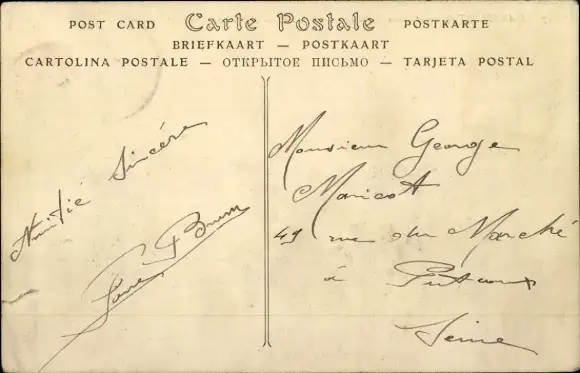 POST CARD Carte Postale POSTKARTE
BRIEFKAART — POSTKAART
CARTOLINA POSTALE — ОТКРЫТОЕ ПИСЬМО — TARJETA POSTAL
Amitié Sincère
Monsieur George
Maricot
49 rue du Marché
à Puteaux
Seine